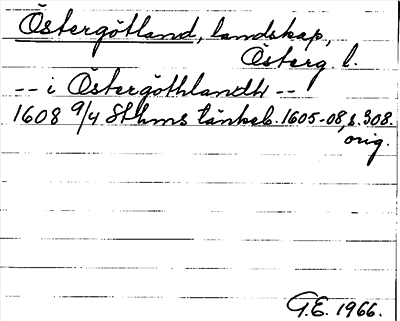 Östergötland, landskap,
Österg l.
-- i Östergöthlandh --
1608 9/4 Sthms tänkeb. 1605-08, s. 308.
orig.
G.E. 1966.